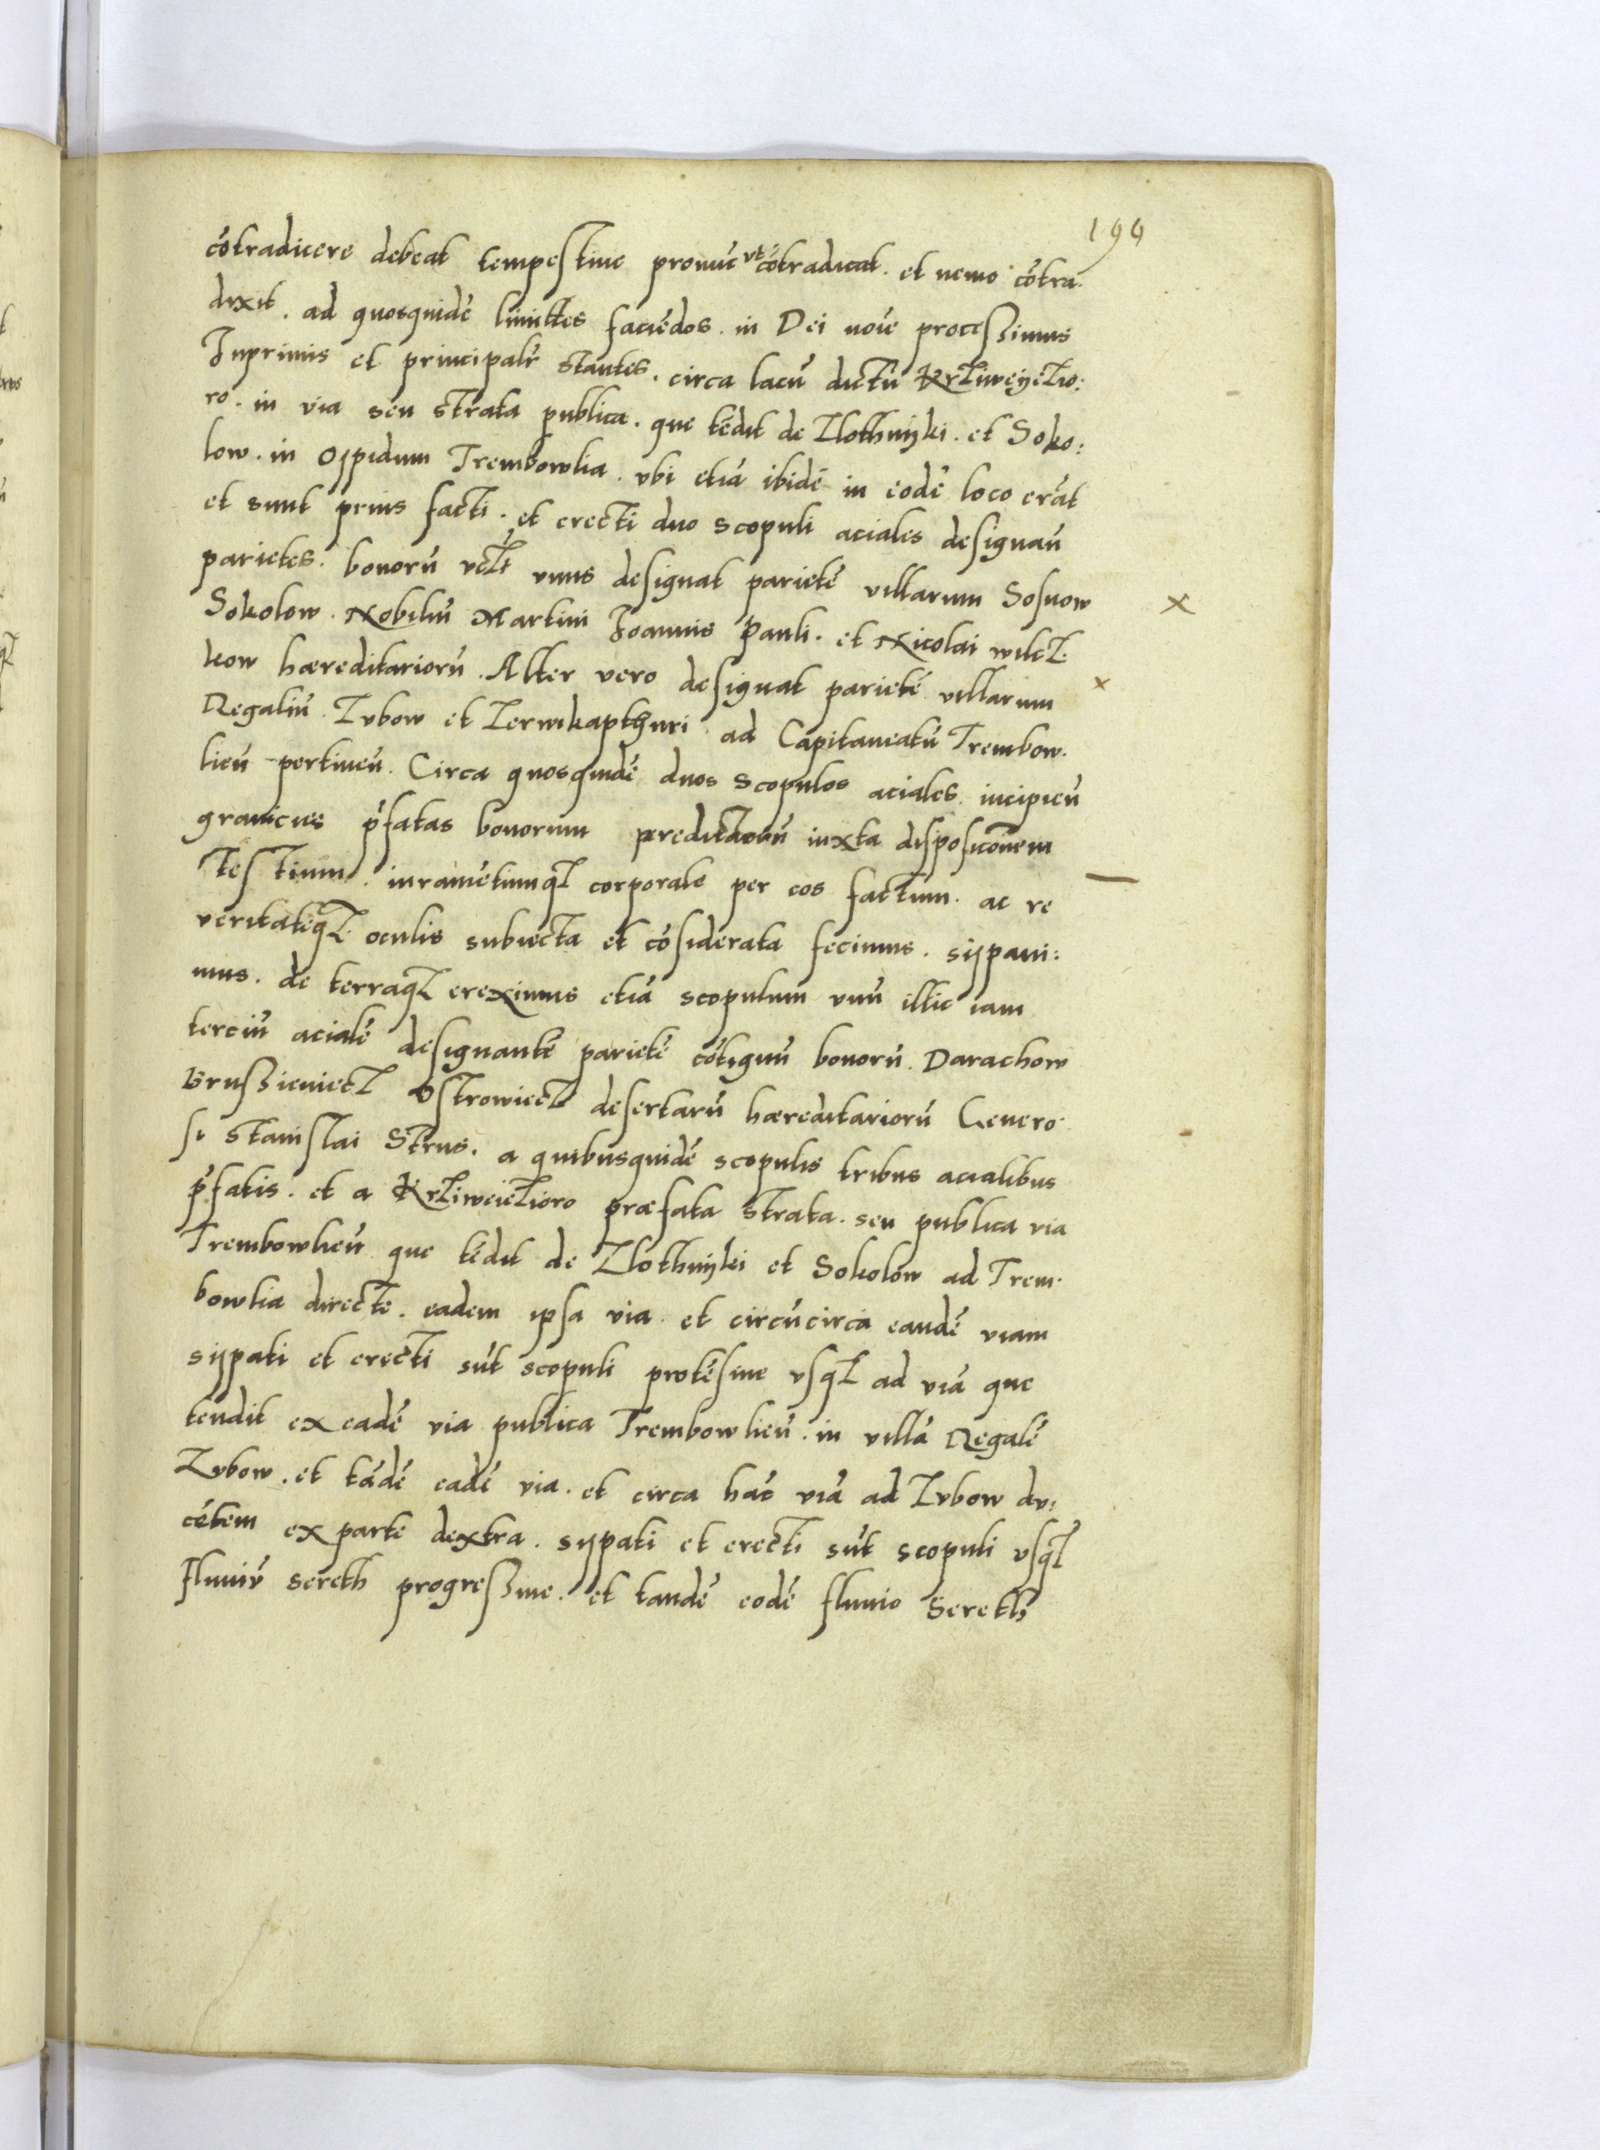 199
cōtradicere debeat tempestiue pronūc vt cōtradicat. et nemo cōtra
dixit. ad quosquidē limittes faciēdos. in Dei noīe processimus
Inprimis et principalr̄ stantes. circa lacū dictū Krziweyezio:
ro. in via seu strata publica. que tēdit de Zlothnyki. et Soko:
low. in Oppidum Trembowlia. vbi etiā ibidē in eodē loco erāt
et sunt prius facti. et erecti duo scopuli aciales designan̄
parietes. bonorū vczt vnus designat parietē villarum Sosnow
Sokolow. Nobiliū Martini Joannis Pauli. et Nicolai wilcz
kow hæreditariorū. Alter vero designat parietē villarum
Regaliū Zvbow et Zerwikapthuri ad Capitaneatū Trembow.
lien̄ pertinen̄. Circa quosquidē duos Scopulos aciales incipien̄
granicies p̄fatas bonorum preditactorū iuxta disposicōnem
Testium. iuramētumqz corporale per eos factum. ac re
veritateqz oculis subiecta et cōsiderata fecimus. sypaui:
mus. de terraqz ereximus etiā scopulum vnū illic iam
terciū acialē designantē parietē cōtiguū bonorū Darachow
Brussieniecz Ostrowiecz desertarū hæreditariorū Genero.
si Stanislai Strus. a quibusquidē scopulis tribus acialibus
p̄fatis. et a Krziweiezioro præfata strata. seu publica via
Trembowlien̄ que tēdit de Zlothnyki et Sokolow ad Trem.
bowlia directe. eadem ipsa via et circūcirca eandē viam
sypati et erecti sūt scopuli protēsiue vsqz ad viā que
tendit ex eadē via publica Trembowlien̄. in villā Regalē
Zvbow. et tādē eadē via. et circa hāc viā ad Zvbow du:
cētem ex parte dextra. sypati et erecti sūt scopuli vsqz
fluuiū Sereth progressiue. et tandē eodē fluuio Sereth